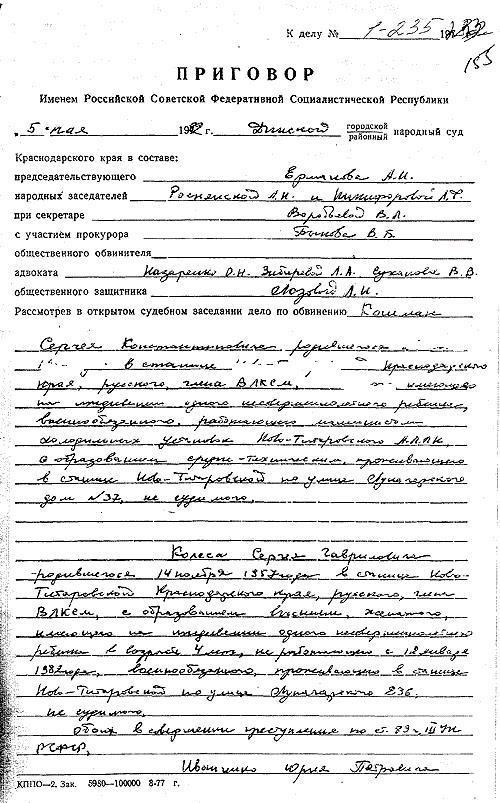 К делу № 1-235 1982
155
ПРИГОВОР
Именем Российской Советской Федеративной Социалистической Республики
5 мая 1982 г. Динской городской районный народный суд
Краснодарского края в составе:
председательствующего Ермакова А.И.
народных заседателей Росненской А.Н. и Никифоровой Л.Ф.
при секретаре Воробьевой В.Л.
с участием прокурора Быкова В.Б.
общественного обвинителя
адвоката Назаренко О.Н. Зибаревой Л.А. Суханова В.В.
общественного защитника Лозовый Л.И.
Рассмотрев в открытом судебном заседании дело по обвинению Кошман
Сергея Константиновича родившегося
в станице Краснодарского
края, русского, члена ВЛКСМ, имеющего
на иждивении одного несовершеннолетнего ребенка,
военнообязанного, работающего машинистом
холодильных установок Ново-Титаровского
с образованием средне-техническим, проживающего
в станице Ново-Титаровской по улице Луначарского
дом № 37, не судимого,
Колеса Сергея Гавриловича
родившегося 14 ноября 1957 года в станице Ново-
Титаровской Краснодарского края, русского, член
ВЛКСМ, с образованием высшим, женатого,
имеющего на иждивении одного несовершеннолетнего
ребенка в возрасте 4 мес, не работающего с 12 января
1982 года, военнообязанного, проживающего в станице
Ново-Титаровской по улице Луначарского 236,
не судимого,
обоих в совершении преступления по ст. 89 ч. III УК
РСФСР,
Иващенко Юрия Петровича
КППО—2. Зак. 5980—100000 8-77 г.